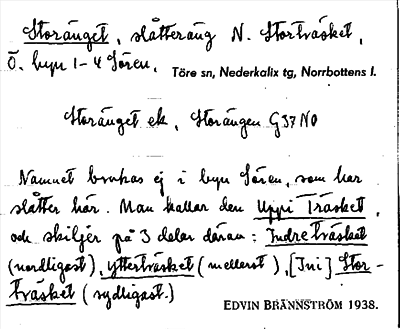 Storänget, slåtteräng N. Storträsket,
Ö. byn 1-4 Sören.
Töre sn, Nederkalix tg, Norrbottens l.
Storänget ek, Storängen G37 NO
Namnet brukas ej i byn Sören, som har
slåtter här. Man kallar den Uppi Träsket,
och skiljer på 3 delar därav: Indreträsket
(nordligast), ytterträsket (mellerst), [Ini] Stor-
träsket (sydligast.)
EDVIN BRÄNNSTRÖM 1938.